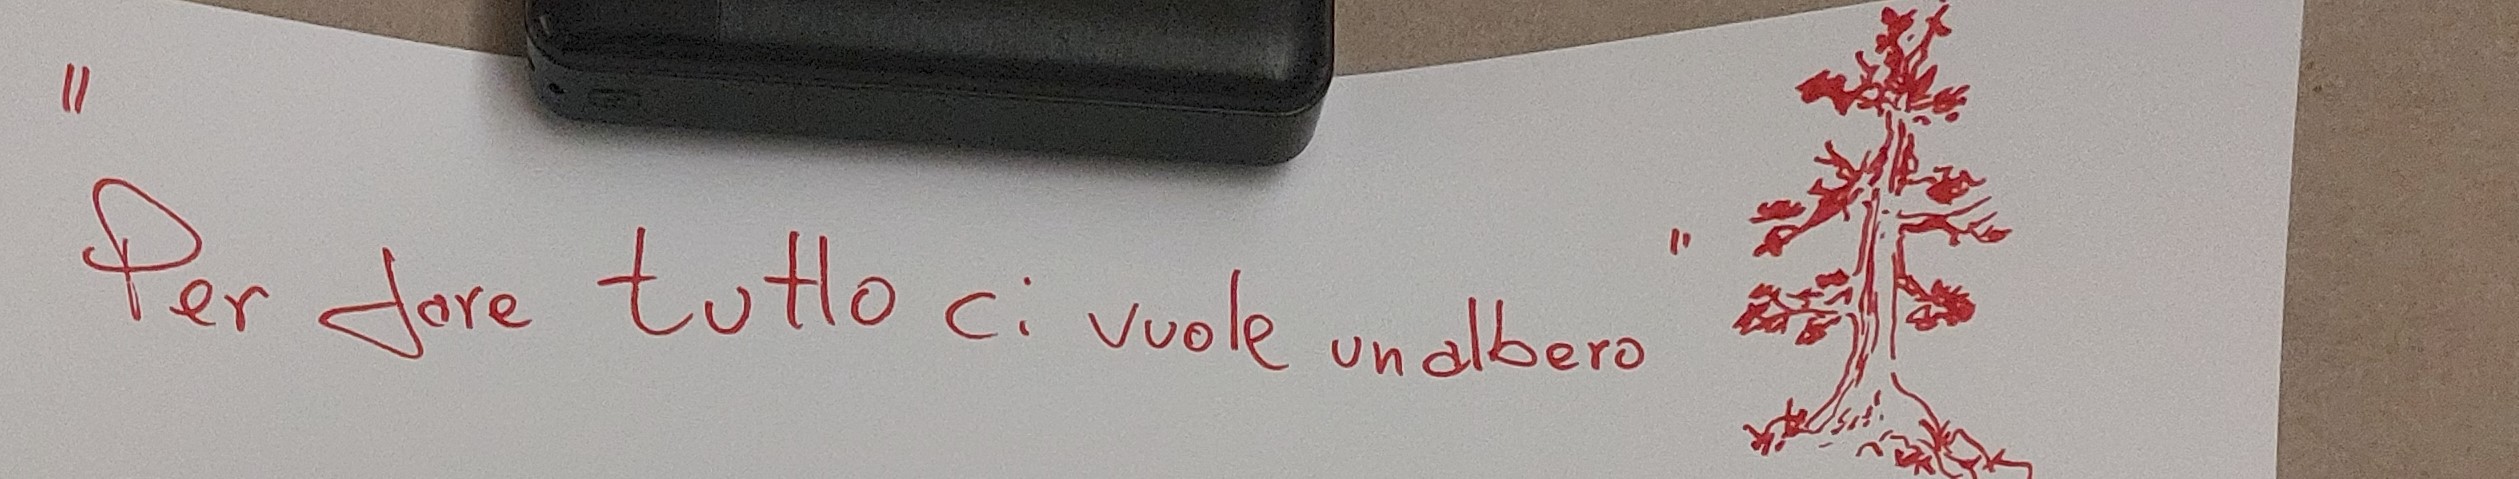 "Per fare tutto ci vuole un albero"